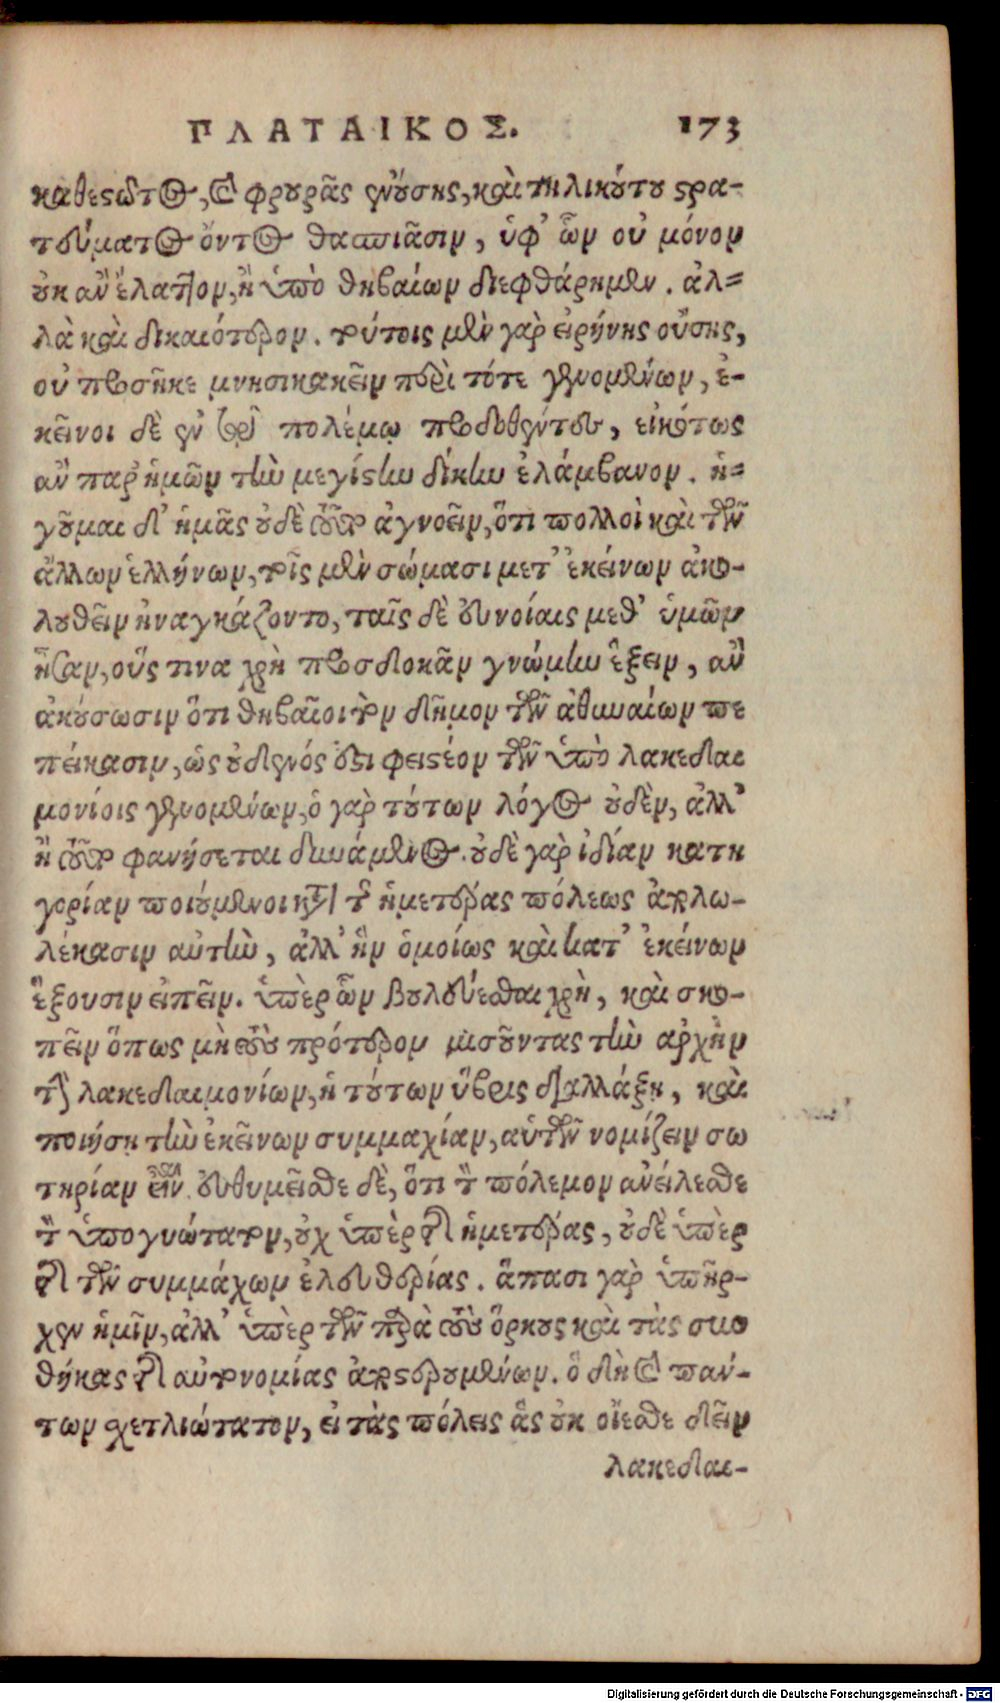 ΠΛΑΤΑΙΚΟΣ. 173
καθεστῶτος, καὶ φρουρᾶς ἐνούσης, καὶ τηλικούτου στρα-
τεύματος ὄντος Θεσπιᾶσιν, ὑφ' ὧν οὐ μόνον
οὐκ ἂν ἔλαττον, ἢ ὑπὸ Θηβαίων διεφθάρημεν. ἀλ-
λὰ καὶ δικαιότερον. τούτοις μὲν γὰρ εἰρήνης οὔσης,
οὐ προσῆκε μνησικακεῖν περὶ τότε γενομένων, ἐ-
κεῖνοι δὲ ἐν τῷ πολέμῳ προδοθέντες, εἰκότως
ἂν παρ' ἡμῶν τὴν μεγίστην δίκην ἐλάμβανον. ἡ-
γοῦμαι δ' ἡμᾶς οὐδὲ τοῦτο ἀγνοεῖν, ὅτι πολλοὶ καὶ τῶν
ἄλλων ἑλλήνων, τοῖς μὲν σώμασι μετ' ἐκείνων ἀκο-
λουθεῖν ἠναγκάζοντο, ταῖς δὲ εὐνοίαις μεθ' ὑμῶν
ἦσαν, οὕς τινα χρὴ προσδοκᾶν γνώμην ἕξειν, ἂν
ἀκούσωσιν ὅτι Θηβαῖοι τὸν δῆμον τῶν ἀθηναίων πε
πείκασιν, ὡς οὐδενός ἐστι φειστέον τῶν ὑπὸ λακεδαι
μονίοις γενομένων, ὁ γὰρ τούτων λόγος οὐδὲν, ἀλλ'
ἢ τοῦτο φανήσεται δυνάμενος. οὐδὲ γὰρ ἰδίαν κατη
γορίαν ποιούμενοι κατὰ τῆς ἡμετέρας πόλεως ἀπολω-
λέκασιν αὐτὴν, ἀλλ' ἣν ὁμοίως καὶ κατ' ἐκείνων
ἕξουσιν εἰπεῖν. ὑπὲρ ὧν βουλεύεσθαι χρὴ, καὶ σκο-
πεῖν ὅπως μὴ τοὺς πρότερον μισοῦντας τὴν ἀρχὴν
τὴν λακεδαιμονίων, ἡ τούτων ὕβρις διαλλάξῃ, καὶ
ποιήσῃ τὴν ἐκείνων συμμαχίαν, αὑτῶν νομίζειν σω
τηρίαν εἶναι. ἐνθυμεῖσθε δὲ, ὅτι τὸν πόλεμον ἀνείλεσθε
τὸν ὑπογυώτατον, οὐχ ὑπὲρ τῆς ἡμετέρας, οὐδὲ ὑπὲρ
τῆς τῶν συμμάχων ἐλευθερίας. ἅπασι γὰρ ὑπῆρ-
χεν ἡμῖν, ἀλλ' ὑπὲρ τῶν παρὰ τοὺς ὅρκους καὶ τὰς συν
θήκας τῆς αὐτονομίας ἀποστερουμένων. ὃ δὴ καὶ πάν-
των σχετλιώτατον, εἰ τὰς πόλεις ἃς οὐκ οἴεσθε δεῖν
λακεδαι-
Digitalisierung gefördert durch die Deutsche Forschungsgemeinschaft - DFG